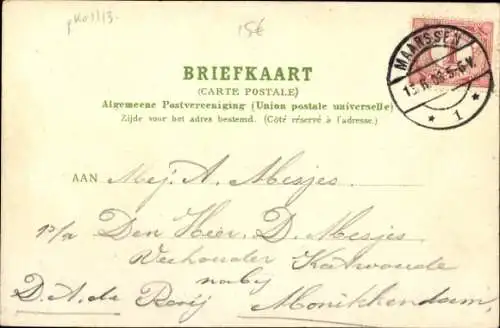 pk01113.
15€
MAARSSEN
5-6 N
★ 1 ★
BRIEFKAART
(CARTE POSTALE)
Algemeene Postvereeniging (Union postale universelle)
Zijde voor het adres bestemd. (Côté réservé à l'adresse.)
AAN Mej. A. Mesjes
p/a Den Heer D. Mesjes
Veehouder Katwoude
naby
D. A. de Rooij Monikkendam,